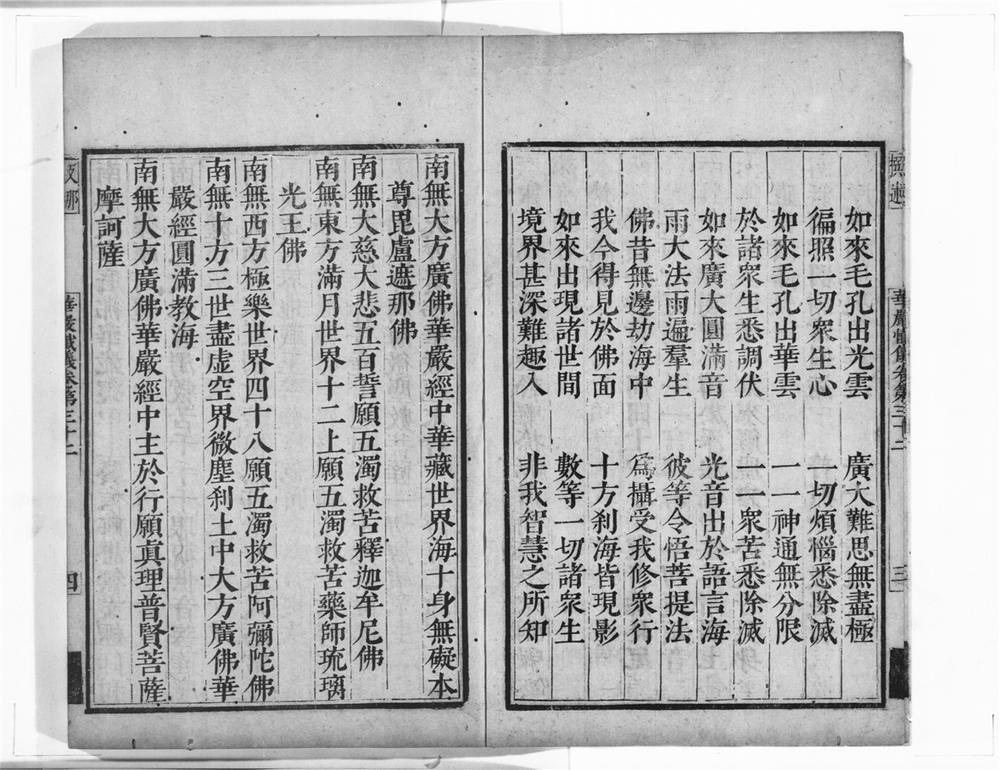 如來毛孔出光雲　廣大難思無盡極
徧照一切衆生心　一切煩惱悉除滅
如來毛孔出華雲　一一神通無分限
於諸衆生悉調伏　一一衆苦悉除滅
如來廣大圓滿音　光音出於語言海
雨大法雨遍羣生　彼等令悟菩提法
佛昔無邊劫海中　爲攝受我修衆行
我今得見於佛面　十方刹海皆現影
如來出現諸世間　數等一切諸衆生
境界甚深難趣入　非我智慧之所知
三
南無大方廣佛華嚴經中華藏世界海十身無礙本
尊毘盧遮那佛
南無大慈大悲五百誓願五濁救苦釋迦牟尼佛
南無東方滿月世界十二上願五濁救苦藥師琉璃
光王佛
南無西方極樂世界四十八願五濁救苦阿彌陀佛
南無十方三世盡虛空界微塵刹土中大方廣佛華
嚴經圓滿教海
南無大方廣佛華嚴經中主於行願眞理普賢菩薩
摩訶薩
華嚴懺儀卷第三十二
四